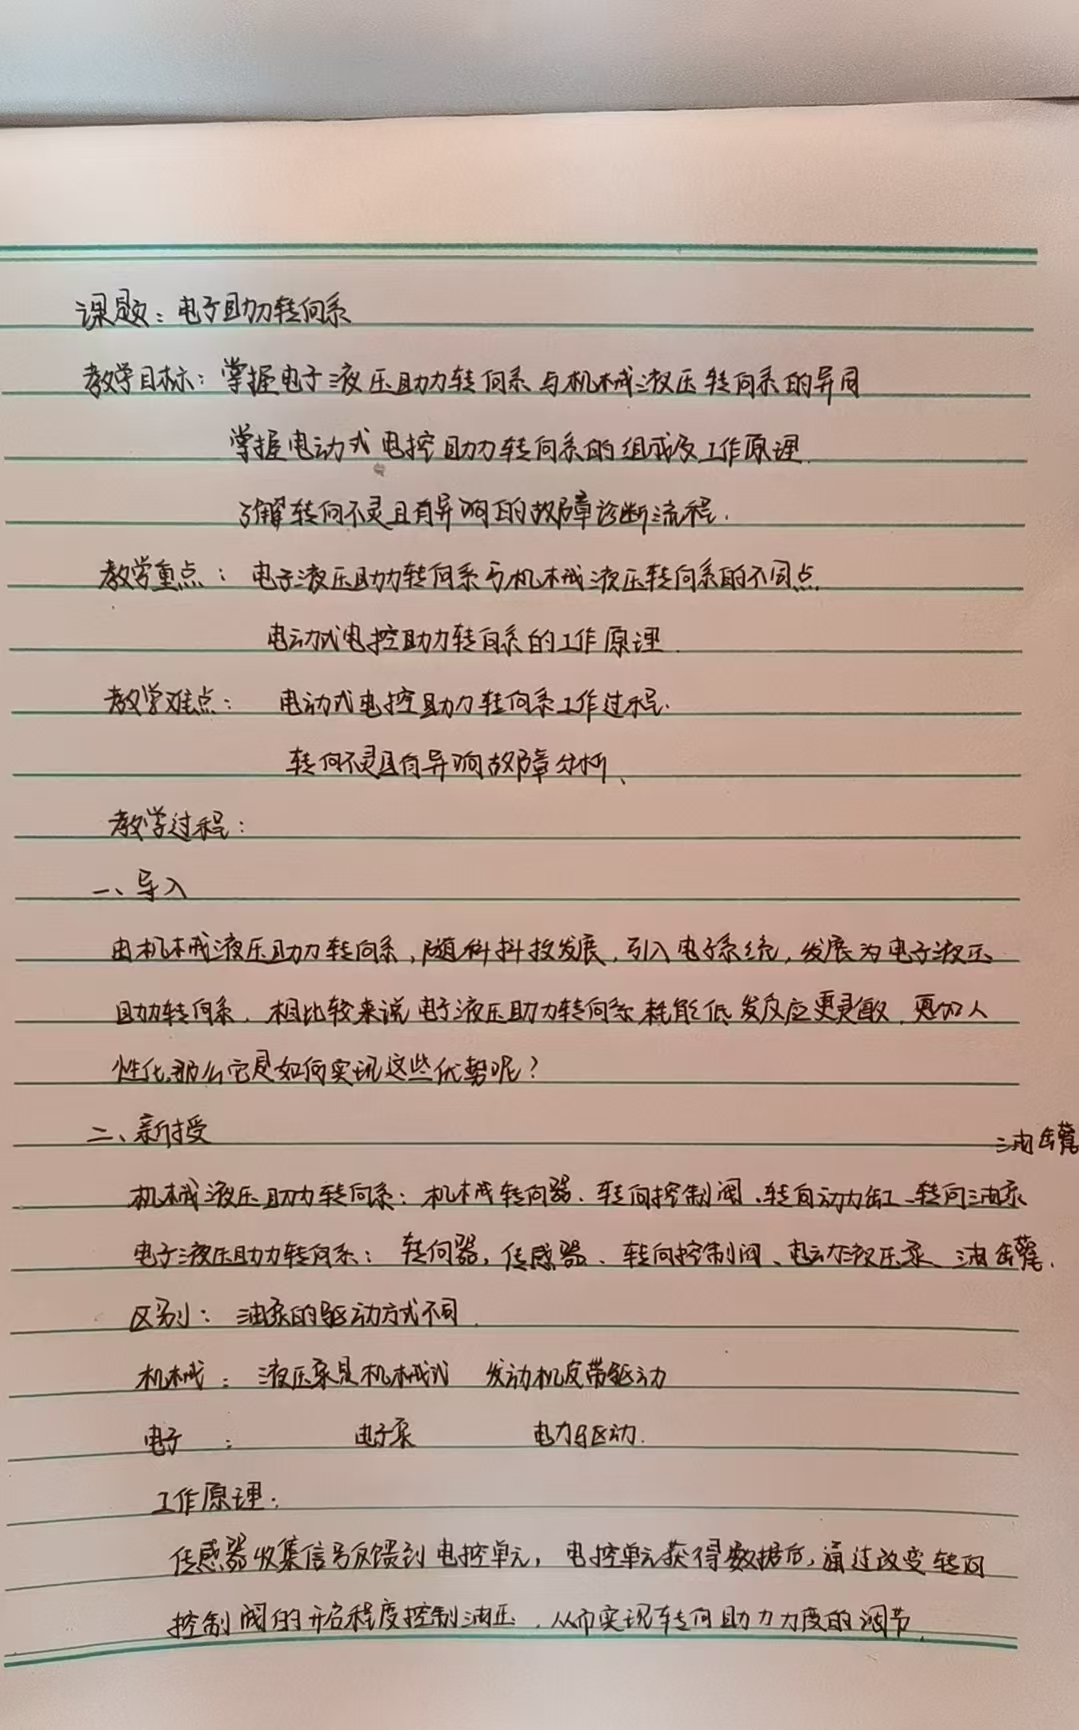 课题：电子助力转向系
教学目标：掌握电子液压助力转向系与机械液压转向系的异同
掌握电动式电控助力转向系的组成及工作原理.
了解转向不灵且有异响的故障诊断流程.
教学重点：电子液压助力转向系与机械液压转向系的不同点
电动式电控助力转向系的工作原理.
教学难点：电动式电控助力转向系工作过程.
转向不灵且有异响故障分析、
教学过程：
一、导入
由机械液压助力转向系，随科技发展，引入电子系统，发展为电子液压
助力转向系. 相比较来说电子液压助力转向系耗能低 发反应更灵敏. 更加人
性化那么它是如何实现这些优势呢？
二、新授
油缶
机械液压助力转向系：机械转向器、转向控制阀、转向动力缸、转向油泵
电子液压助力转向系：转向器，传感器、转向控制阀、电动液压泵、油缶.
区别：油泵的驱动方式不同.
机械：液压泵是机械式 发动机皮带驱动
电子： 电子泵 电力驱动.
工作原理：
传感器收集信号反馈到电控单元，电控单元获得数据后，通过改变转向
控制阀的开启程度控制油压，从而实现转向助力力度的调节.